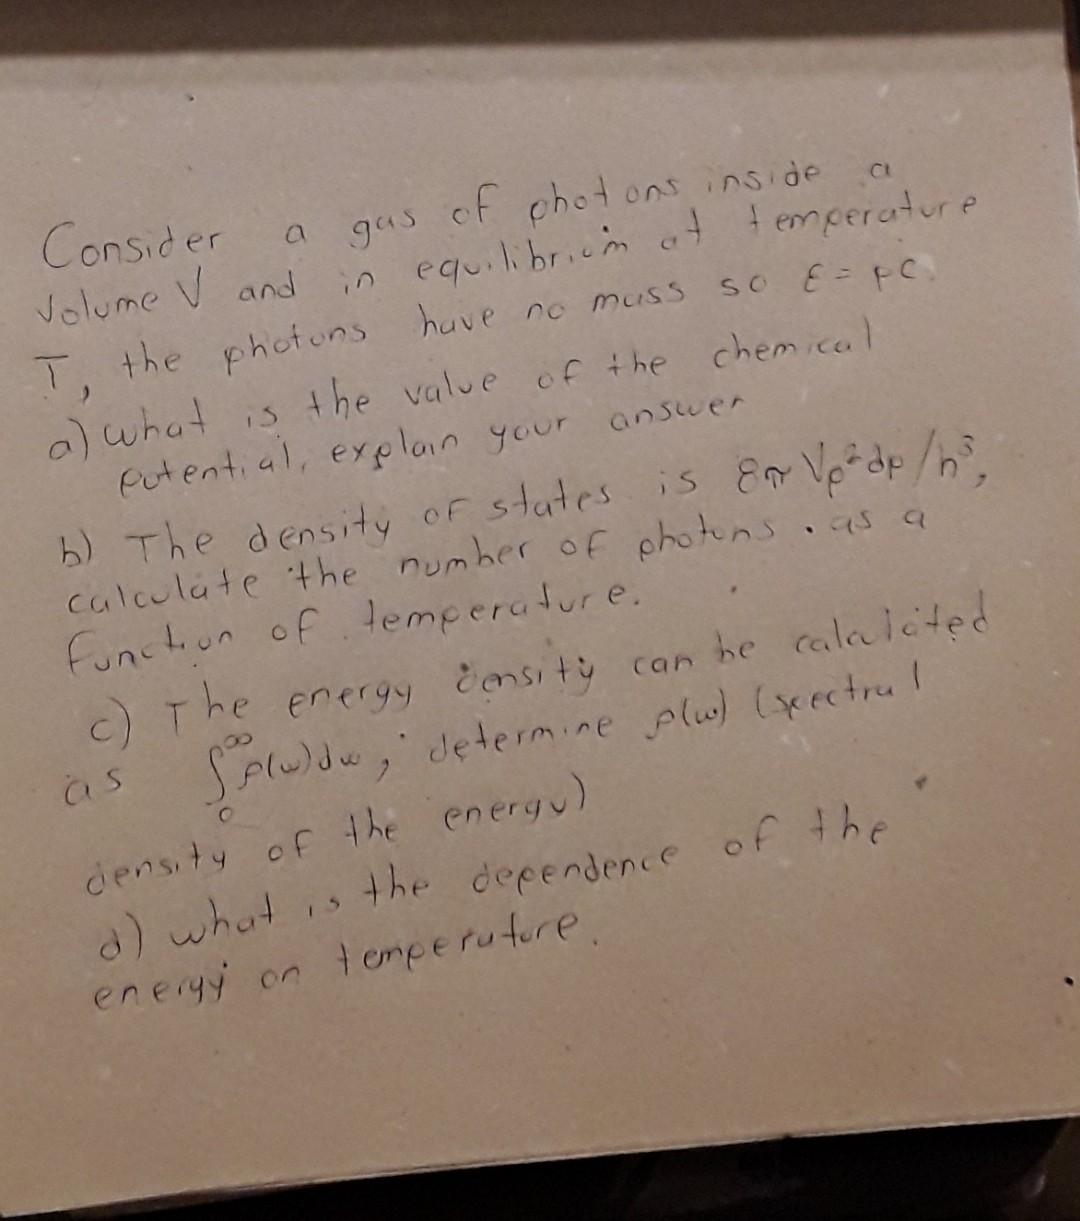 Consider a gas of photons inside a
Volume V and in equilibrium at temperature
T, the photons have no mass so ε = pc.
a) what is the value of the chemical
potential, explain your answer
b) The density of states is 8π Vp²dp/h³,
calculate the number of photons . as a
function of temperature.
c) The energy density can be calculated
as ∫₀^∞ ρ(ω)dω, determine ρ(ω) (spectral
density of the energy)
d) what is the dependence of the
energy on temperature.